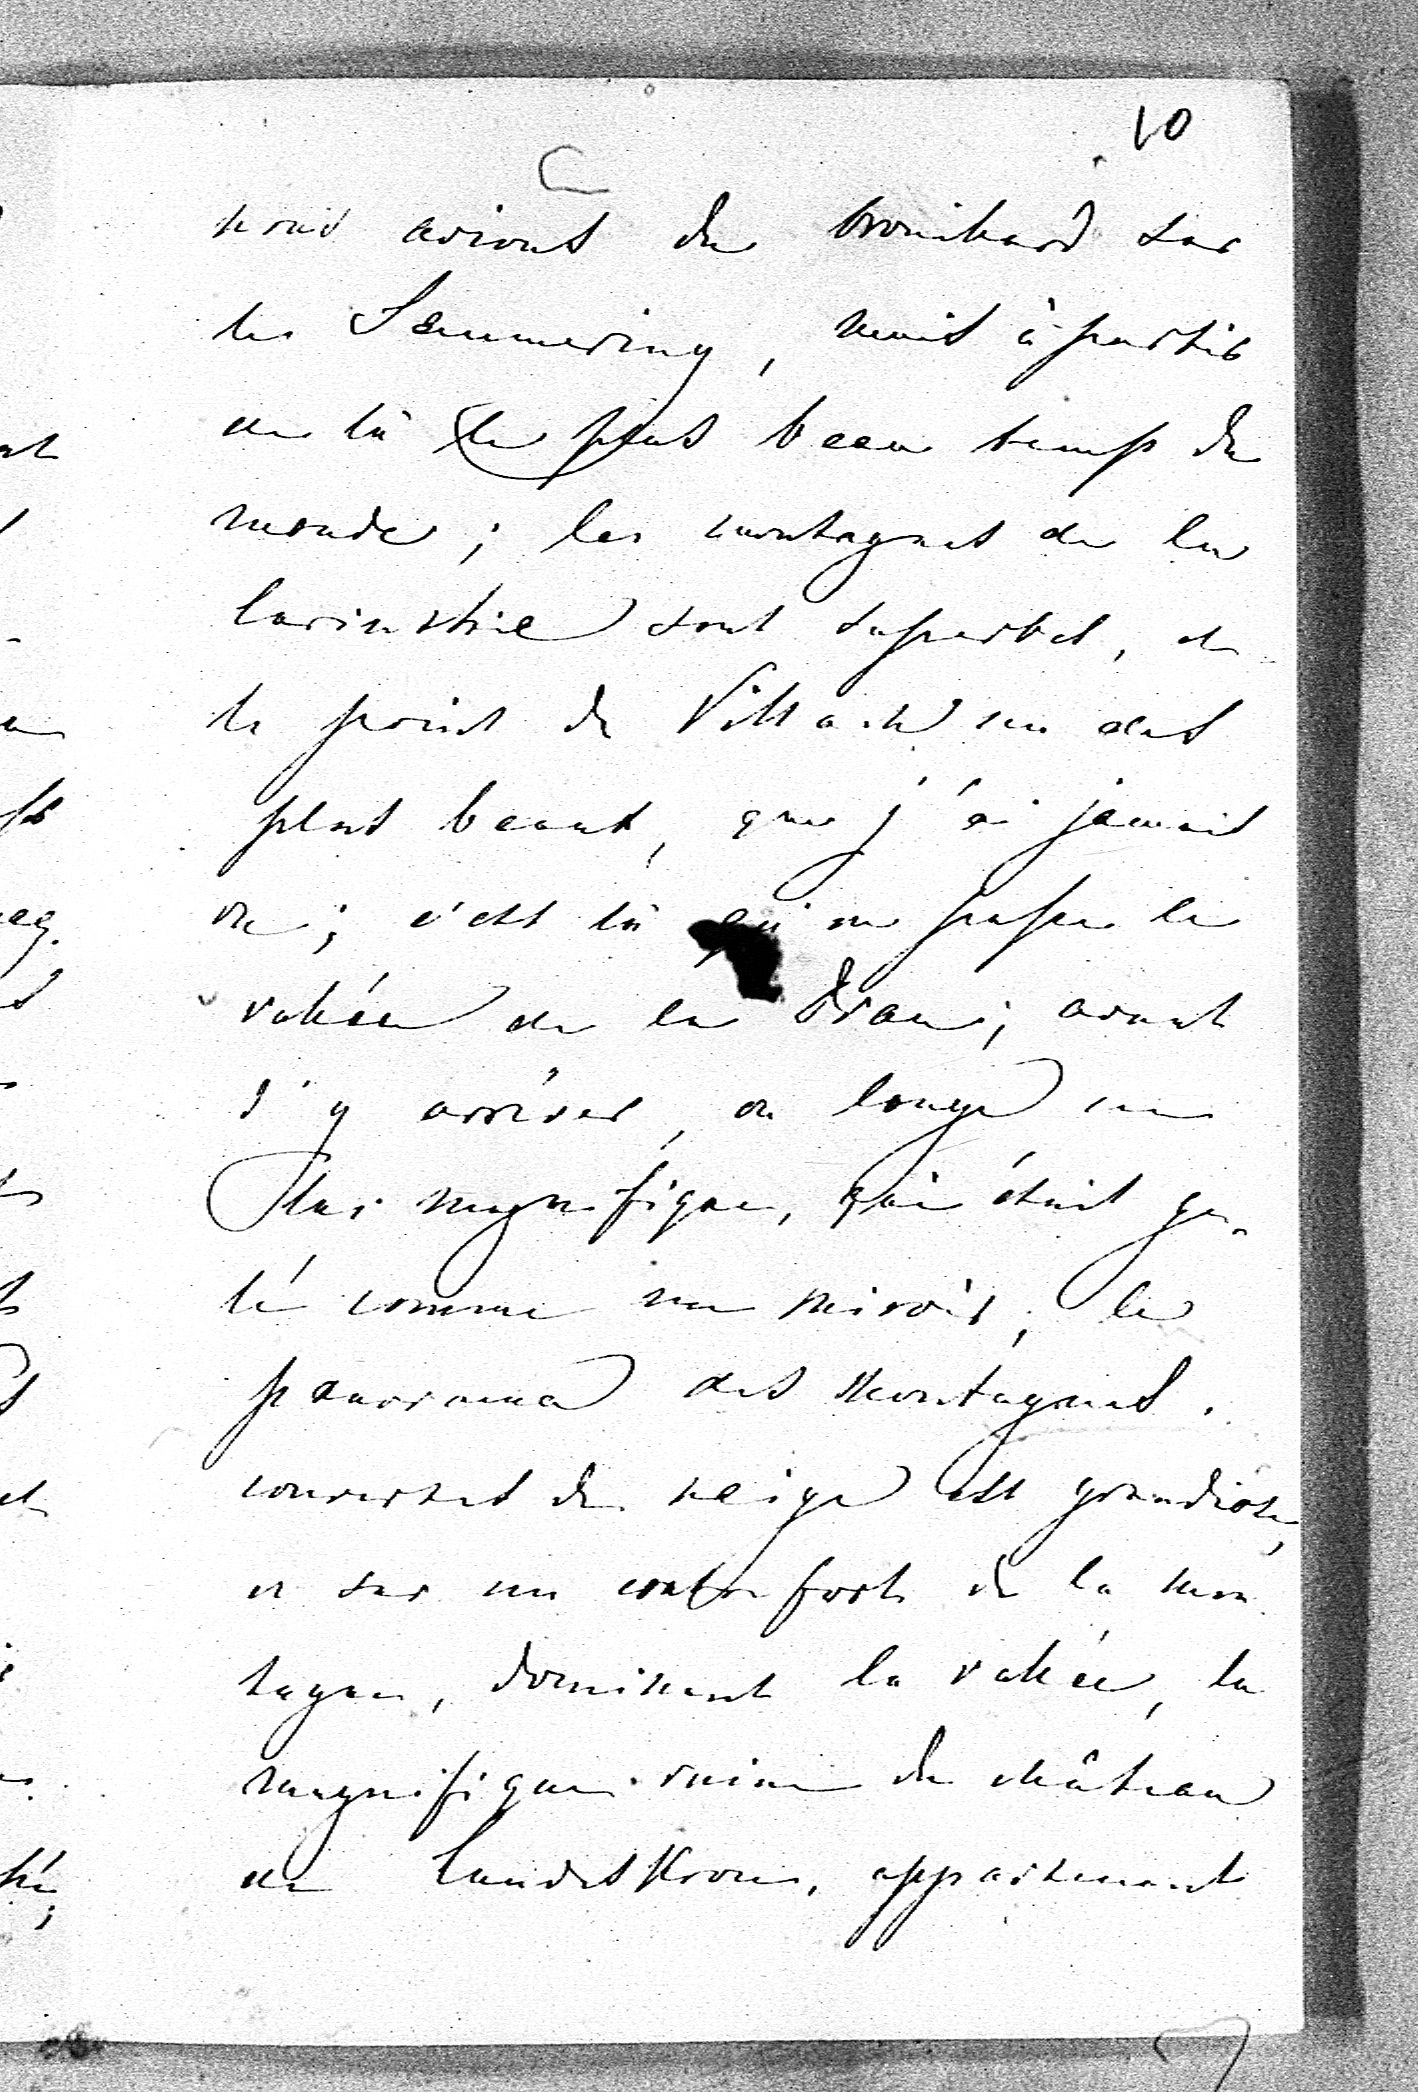 10
nous avions du brouillard sur
le Semmering, mais à partir
de là le plus beau temps du
monde; les montagnes de la
Carinthie sont superbes, et
le point de Villach un des
plus beaux, que j'ai jamais
vu; c'est là qu'on passe la
vallée de la Drau; avant
d'y arriver, on longe un
lac magnifique, qui était ge-
lé comme un miroir; le
panorama des montagnes
couvertes de neige est grandiose,
et sur un contrefort de la mon
tagne, dominant la vallée, la
magnifique ruine du château
de Landskron, appartenant